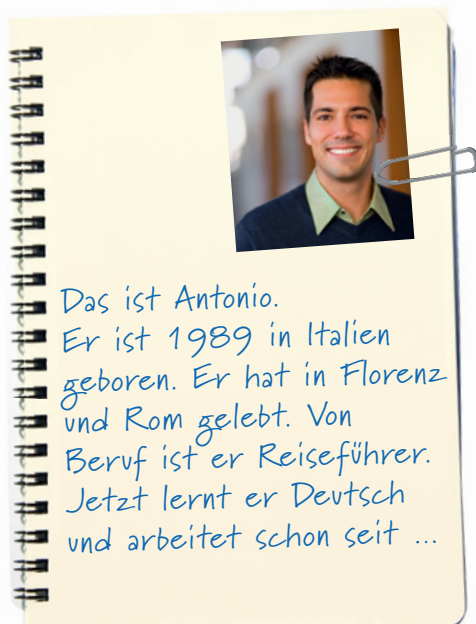 Das ist Antonio.
Er ist 1989 in Italien
geboren. Er hat in Florenz
und Rom gelebt. Von
Beruf ist er Reiseführer.
Jetzt lernt er Deutsch
und arbeitet schon seit ...